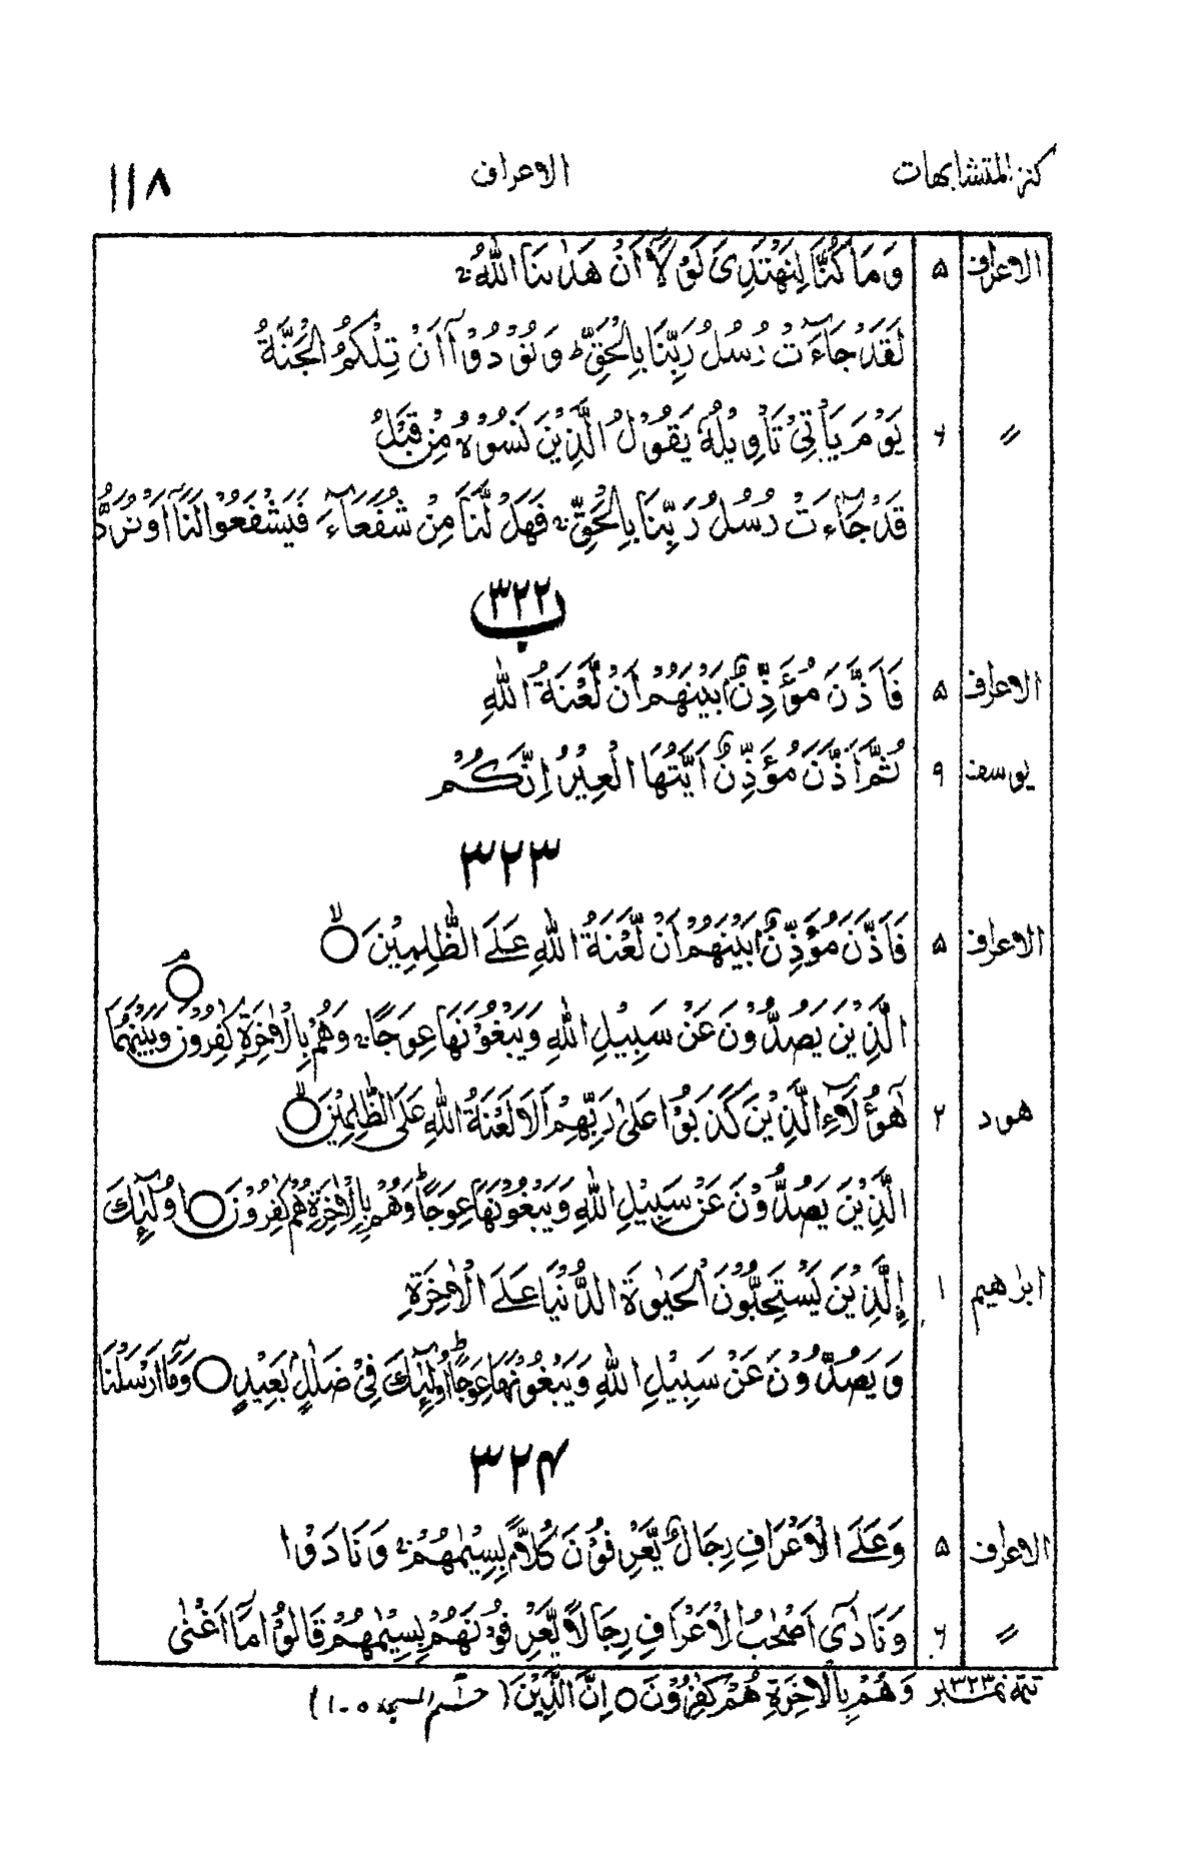 كنز المتشابهات الاعراف ١١٨
الاعراف ۵ وَمَا كُنَّا لِنَهْتَدِيَ لَوْلَآ اَنْ هَدٰىنَا اللّٰهُ ۚ
لَقَدْ جَآءَتْ رُسُلُ رَبِّنَا بِالْحَقِّ ؕ وَنُوْدُوْٓا اَنْ تِلْكُمُ الْجَنَّةُ
〃 ۶ يَوْمَ يَاْتِيْ تَاْوِيْلُهٗ يَقُوْلُ الَّذِيْنَ نَسُوْهُ مِنْ قَبْلُ
قَدْ جَآءَتْ رُسُلُ رَبِّنَا بِالْحَقِّ ۚ فَهَلْ لَّنَا مِنْ شُفَعَآءَ فَيَشْفَعُوْا لَنَآ اَوْ نُرَدُّ
٣٢٢ ب
الاعراف ۵ فَاَذَّنَ مُؤَذِّنٌۢ بَيْنَهُمْ اَنْ لَّعْنَةُ اللّٰهِ
يوسف ۹ ثُمَّ اَذَّنَ مُؤَذِّنٌ اَيَّتُهَا الْعِيْرُ اِنَّكُمْ
٣٢٣
الاعراف ۵ فَاَذَّنَ مُؤَذِّنٌۢ بَيْنَهُمْ اَنْ لَّعْنَةُ اللّٰهِ عَلَى الظّٰلِمِيْنَ ○ ۙ
الَّذِيْنَ يَصُدُّوْنَ عَنْ سَبِيْلِ اللّٰهِ وَيَبْغُوْنَهَا عِوَجًا ۚ وَهُمْ بِالْاٰخِرَةِ كٰفِرُوْنَ ○ ۘ وَبَيْنَهُمَا
هود ۲ هٰٓؤُلَآءِ الَّذِيْنَ كَذَبُوْا عَلٰى رَبِّهِمْ اَلَا لَعْنَةُ اللّٰهِ عَلَى الظّٰلِمِيْنَ ○ ۙ
الَّذِيْنَ يَصُدُّوْنَ عَنْ سَبِيْلِ اللّٰهِ وَيَبْغُوْنَهَا عِوَجًا ؕ وَهُمْ بِالْاٰخِرَةِ هُمْ كٰفِرُوْنَ ○ اُولٰٓئِكَ
ابراهيم ۱ الَّذِيْنَ يَسْتَحِبُّوْنَ الْحَيٰوةَ الدُّنْيَا عَلَى الْاٰخِرَةِ
وَيَصُدُّوْنَ عَنْ سَبِيْلِ اللّٰهِ وَيَبْغُوْنَهَا عِوَجًا ؕ اُولٰٓئِكَ فِيْ ضَلٰلٍۭ بَعِيْدٍ ○ وَمَآ اَرْسَلْنَا
٣٢۴
الاعراف ۵ وَعَلَى الْاَعْرَافِ رِجَالٌ يَّعْرِفُوْنَ كُلًّاۢ بِسِيْمٰهُمْ ۚ وَنَادَوْا
〃 ۶ وَنَادٰٓى اَصْحٰبُ الْاَعْرَافِ رِجَالًا يَّعْرِفُوْنَهُمْ بِسِيْمٰهُمْ قَالُوْا مَآ اَغْنٰى
تتمه نمبر ٣٢٣ وَهُمْ بِالْاٰخِرَةِ هُمْ كٰفِرُوْنَ ○ اِنَّ الَّذِيْنَ (حٰمٓ السجده ۵-۱)